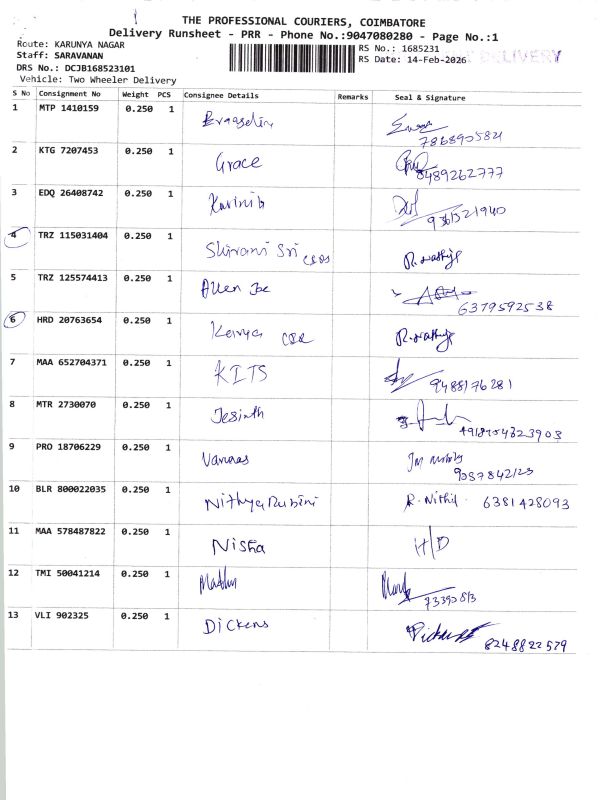 THE PROFESSIONAL COURIERS, COIMBATORE
Delivery Runsheet - PRR - Phone No.:9047080280 - Page No.:1
Route: KARUNYA NAGAR
RS No.: 1685231
DELIVERY
Staff: SARAVANAN
RS Date: 14-Feb-2026
DRS No.: DCJB168523101
Vehicle: Two Wheeler Delivery
S No Consignment No Weight PCS Consignee Details Remarks Seal & Signature
1 MTP 1410159 0.250 1
7868905821
2 KTG 7207453 0.250 1 Grace
8489262777
3 EDQ 26408742 0.250 1
9361321940
4 TRZ 115031404 0.250 1 Shivani Sri
5 TRZ 125574413 0.250 1 Allen Joe
6379592538
6 HRD 20763654 0.250 1 Kavya
7 MAA 652704371 0.250 1 KITS
9488176281
8 MTR 2730070 0.250 1 Jesinth
9 PRO 18706229 0.250 1
9087842123
10 BLR 800022035 0.250 1 Nithya Rubini R. Nithil 6381428093
11 MAA 578487822 0.250 1 Nisha H/D
12 TMI 50041214 0.250 1
13 VLI 902325 0.250 1 Dickens
8248822579